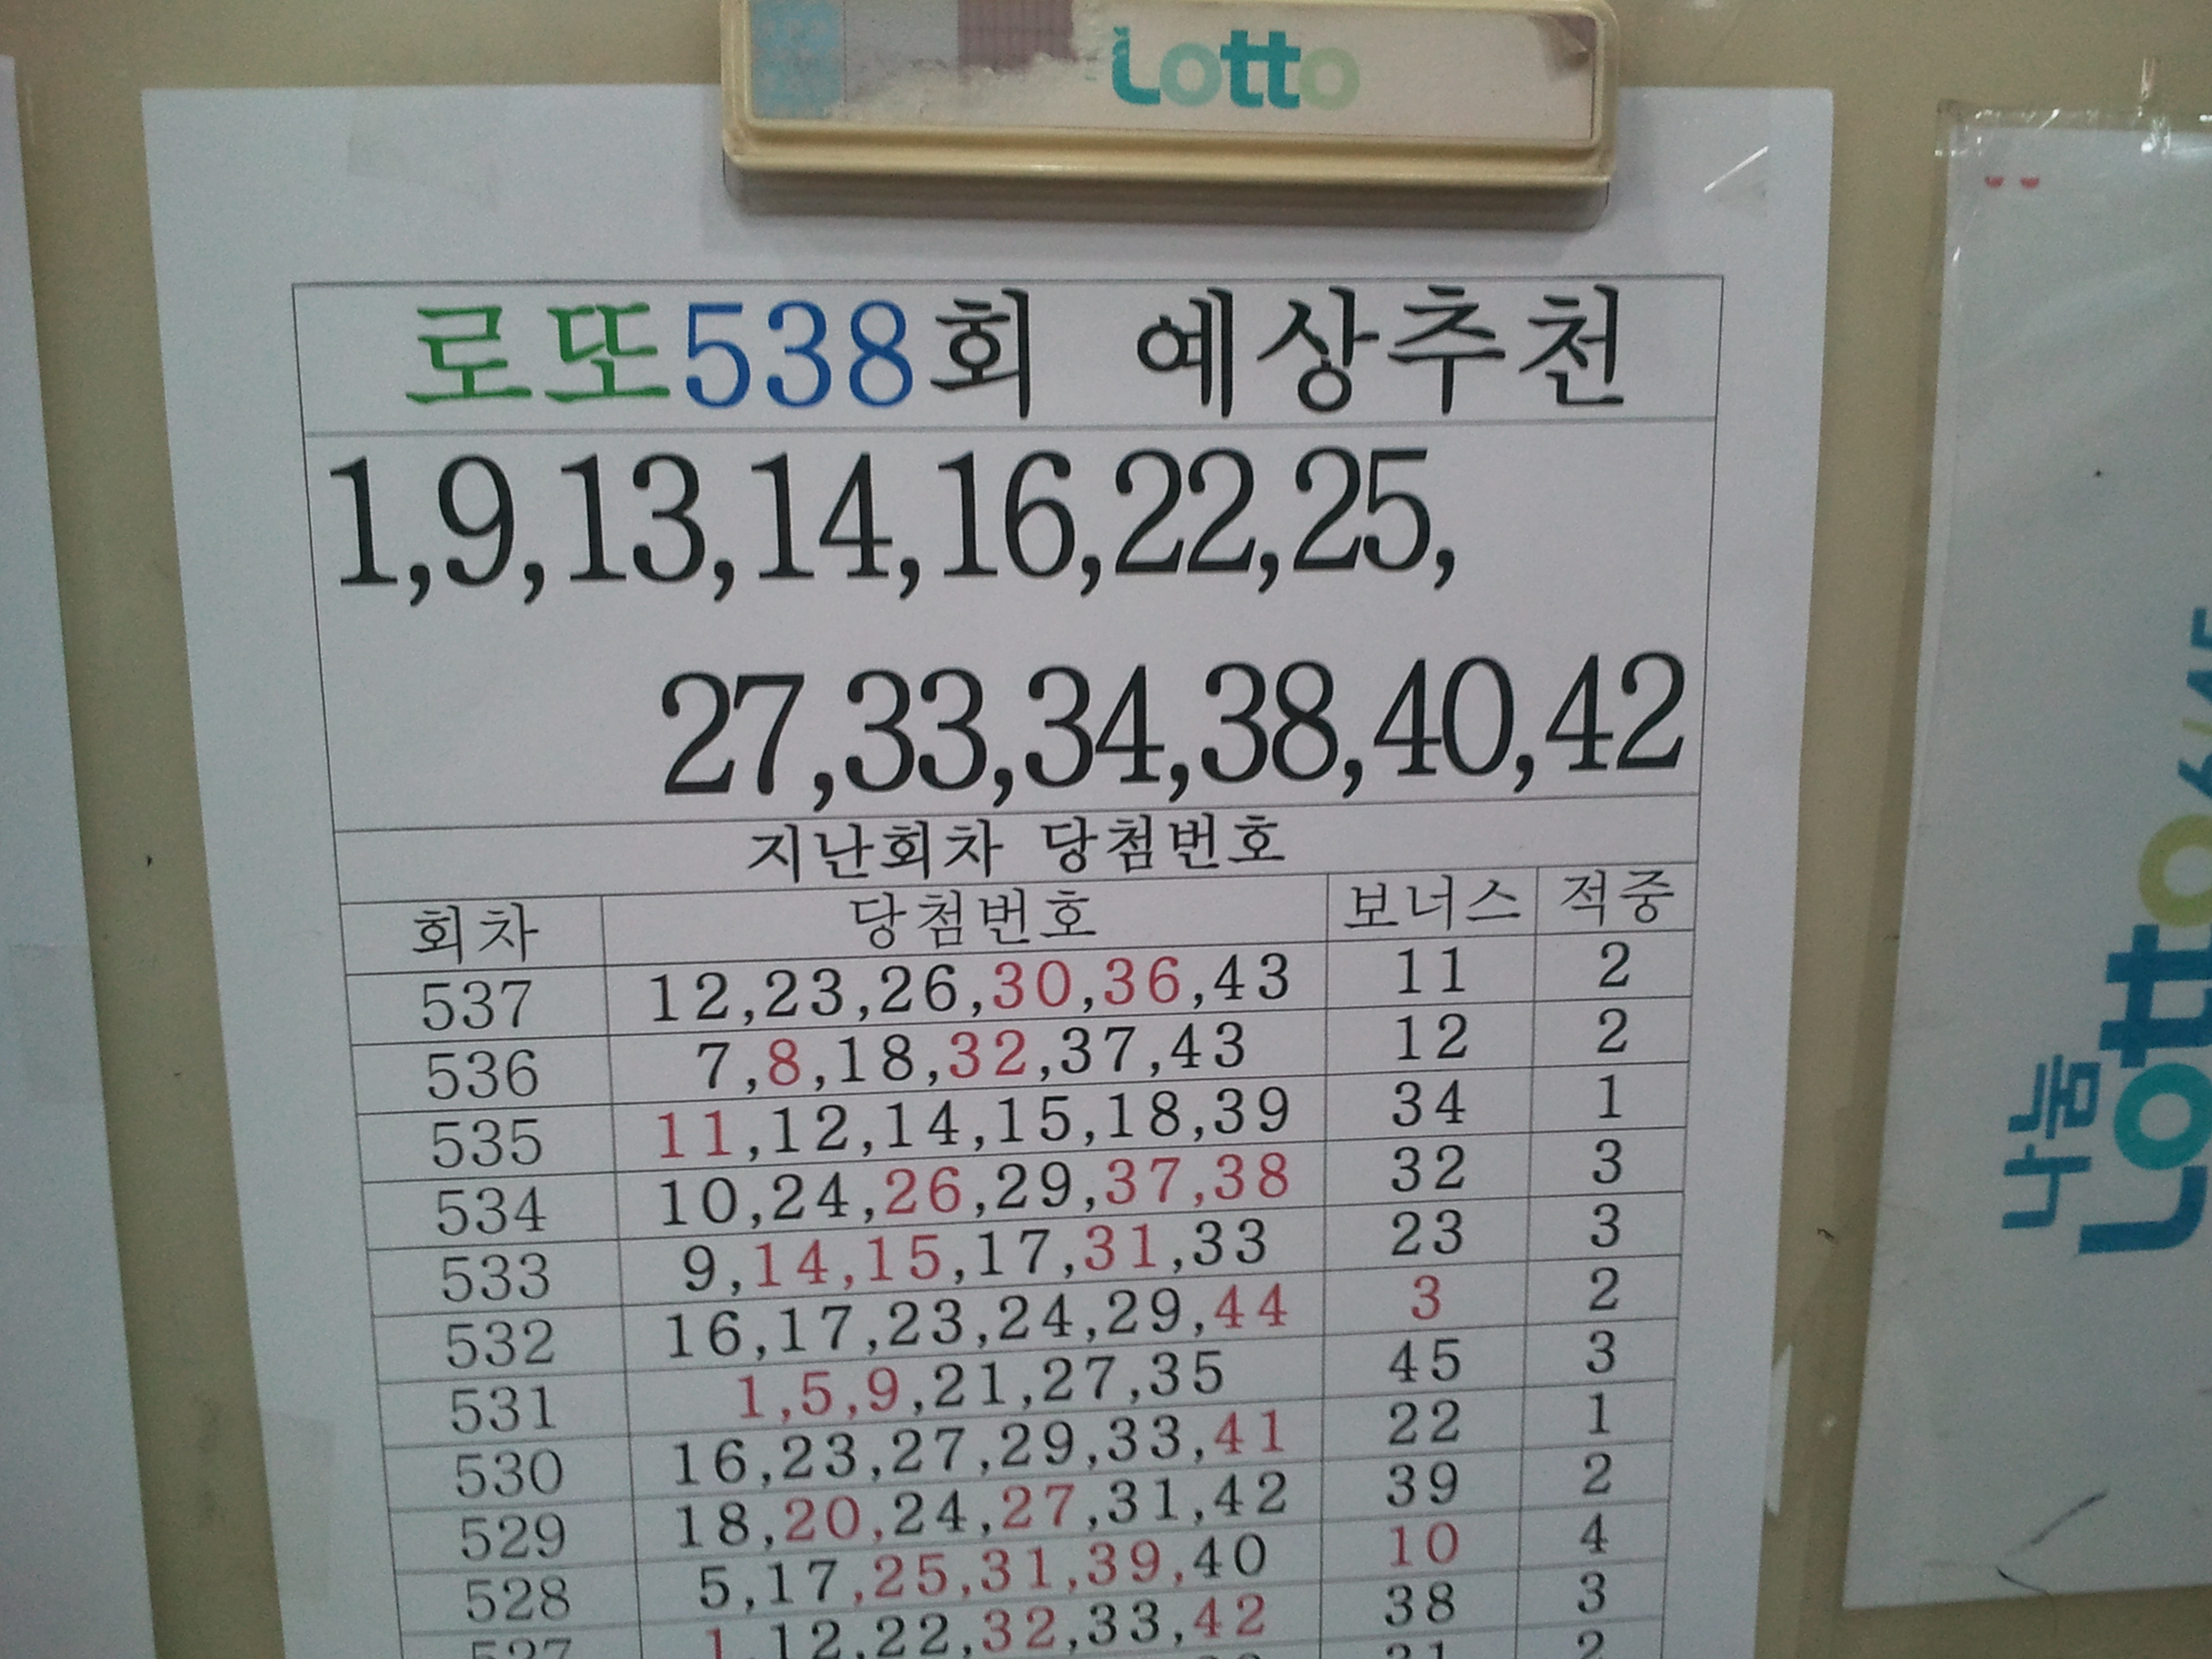 Lotto
로또538회 예상추천
1,9,13,14,16,22,25,
27,33,34,38,40,42
지난회차 당첨번호
회차 당첨번호 보너스 적중
537 12,23,26,30,36,43 11 2
536 7,8,18,32,37,43 12 2
535 11,12,14,15,18,39 34 1
534 10,24,26,29,37,38 32 3
533 9,14,15,17,31,33 23 3
532 16,17,23,24,29,44 3 2
531 1,5,9,21,27,35 45 3
530 16,23,27,29,33,41 22 1
529 18,20,24,27,31,42 39 2
528 5,17,25,31,39,40 10 4
527 1,12,22,32,33,42 38 3
21 2
나눔
Lotto 6/45